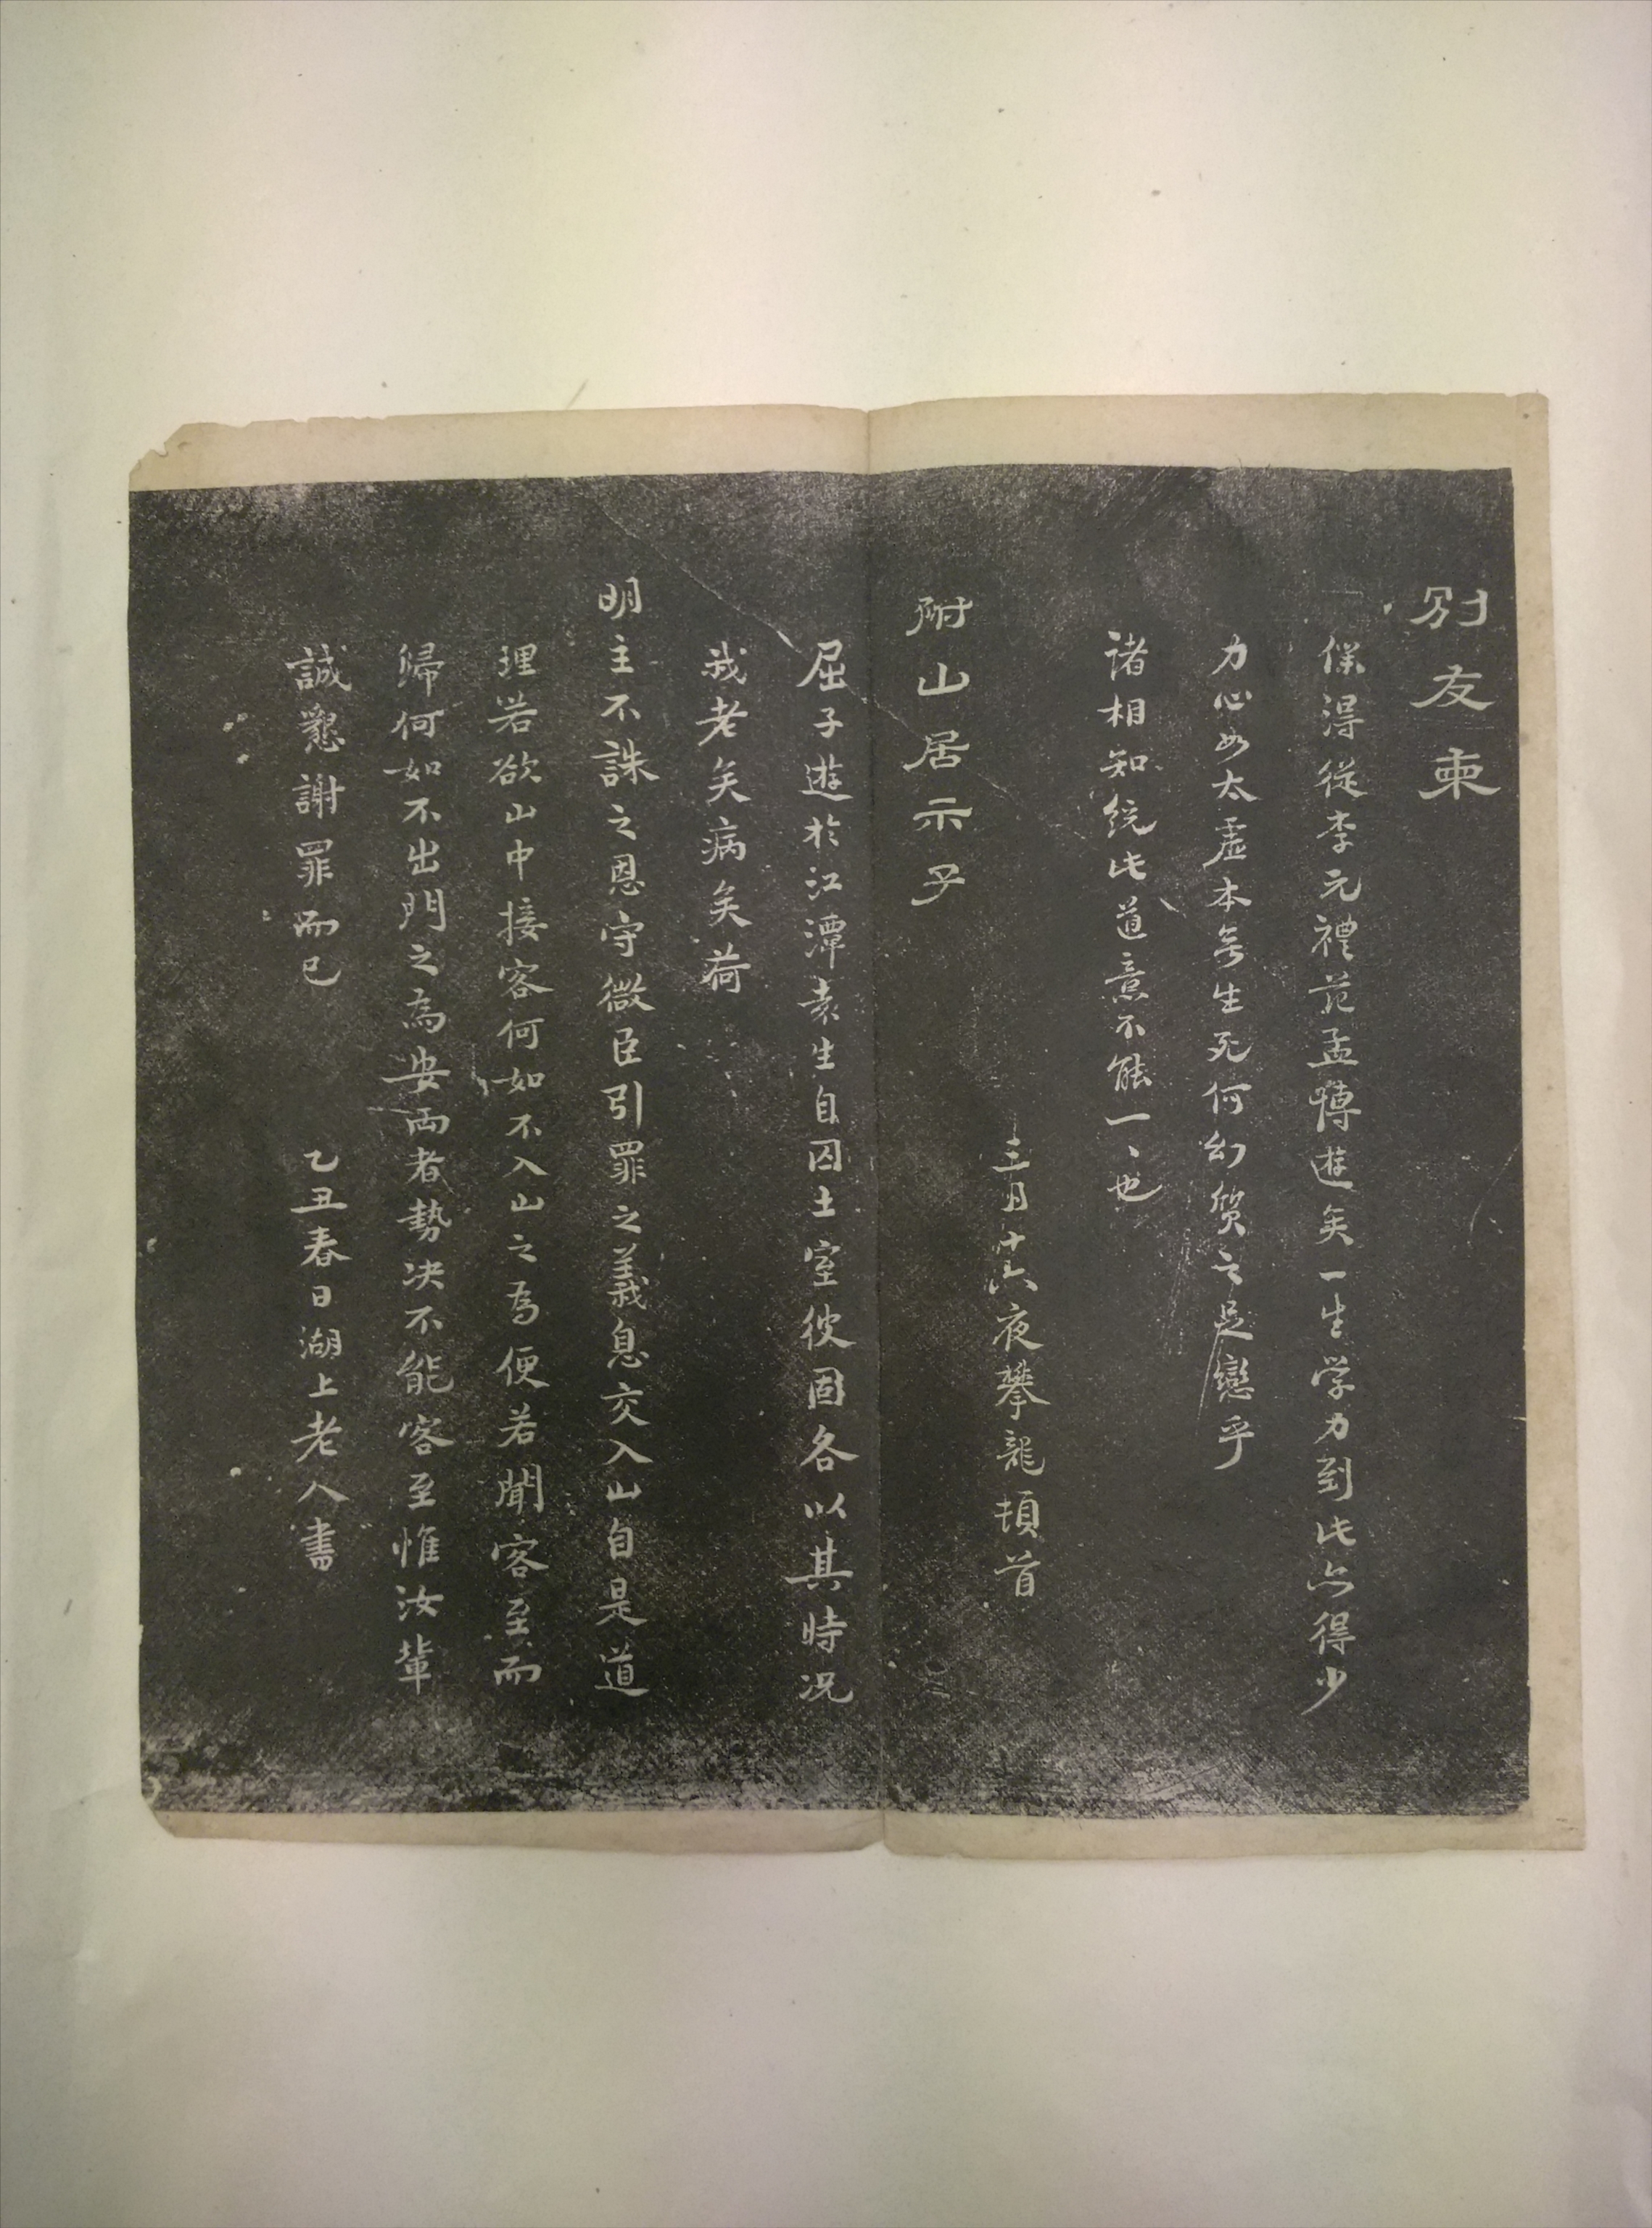 別友柬
僕得從李元禮范孟博遊矣一生学力到此亦得少
力心如太虛本無生死何幻質之足戀乎
諸相知統此道意不能一、也
三月十六夜攀龍頓首
附山居示子
屈子遊於江潭袁生自囚土室彼固各以其時况
我老矣病矣荷
明主不誅之恩守微臣引罪之義息交入山自是道
理若欲山中接客何如不入山之為便若聞客至而
歸何如不出門之為安両者勢决不能客至惟汝輩
誠懇謝罪而已
乙丑春日湖上老人書